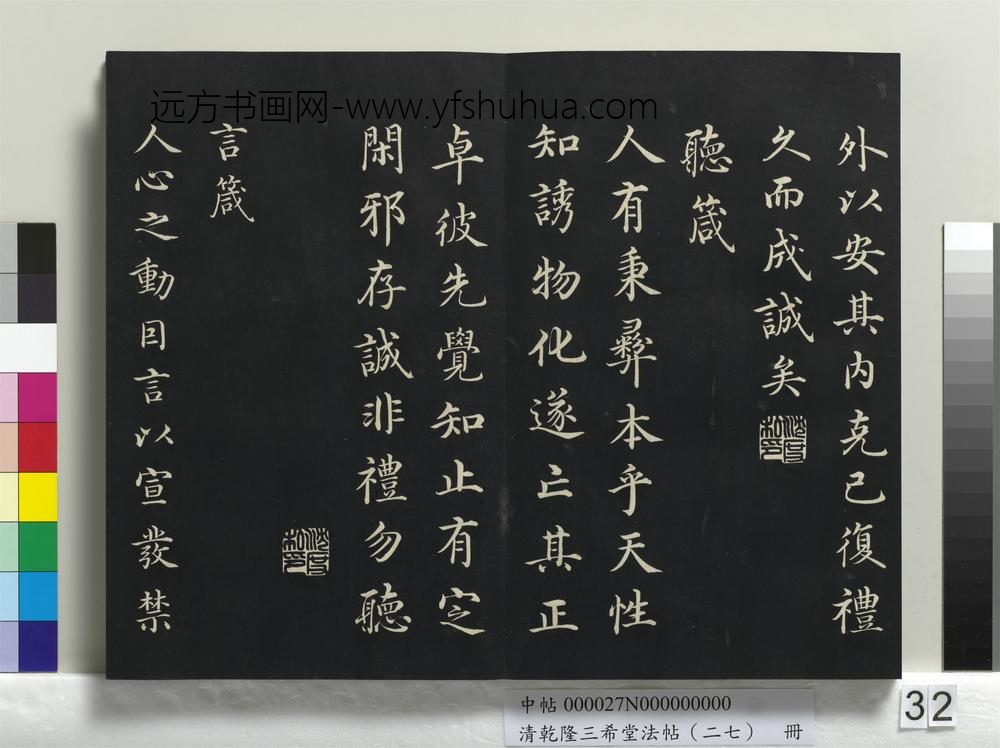 远方书画网-www.yfshuhua.com
外以安其内克己復禮
久而成誠矣
聽箴
人有秉彞本乎天性
知誘物化遂亡其正
卓彼先覺知止有定
閑邪存誠非禮勿聽
言箴
人心之動因言以宣發禁
中帖 000027N000000000
清乾隆三希堂法帖（二七） 冊
32